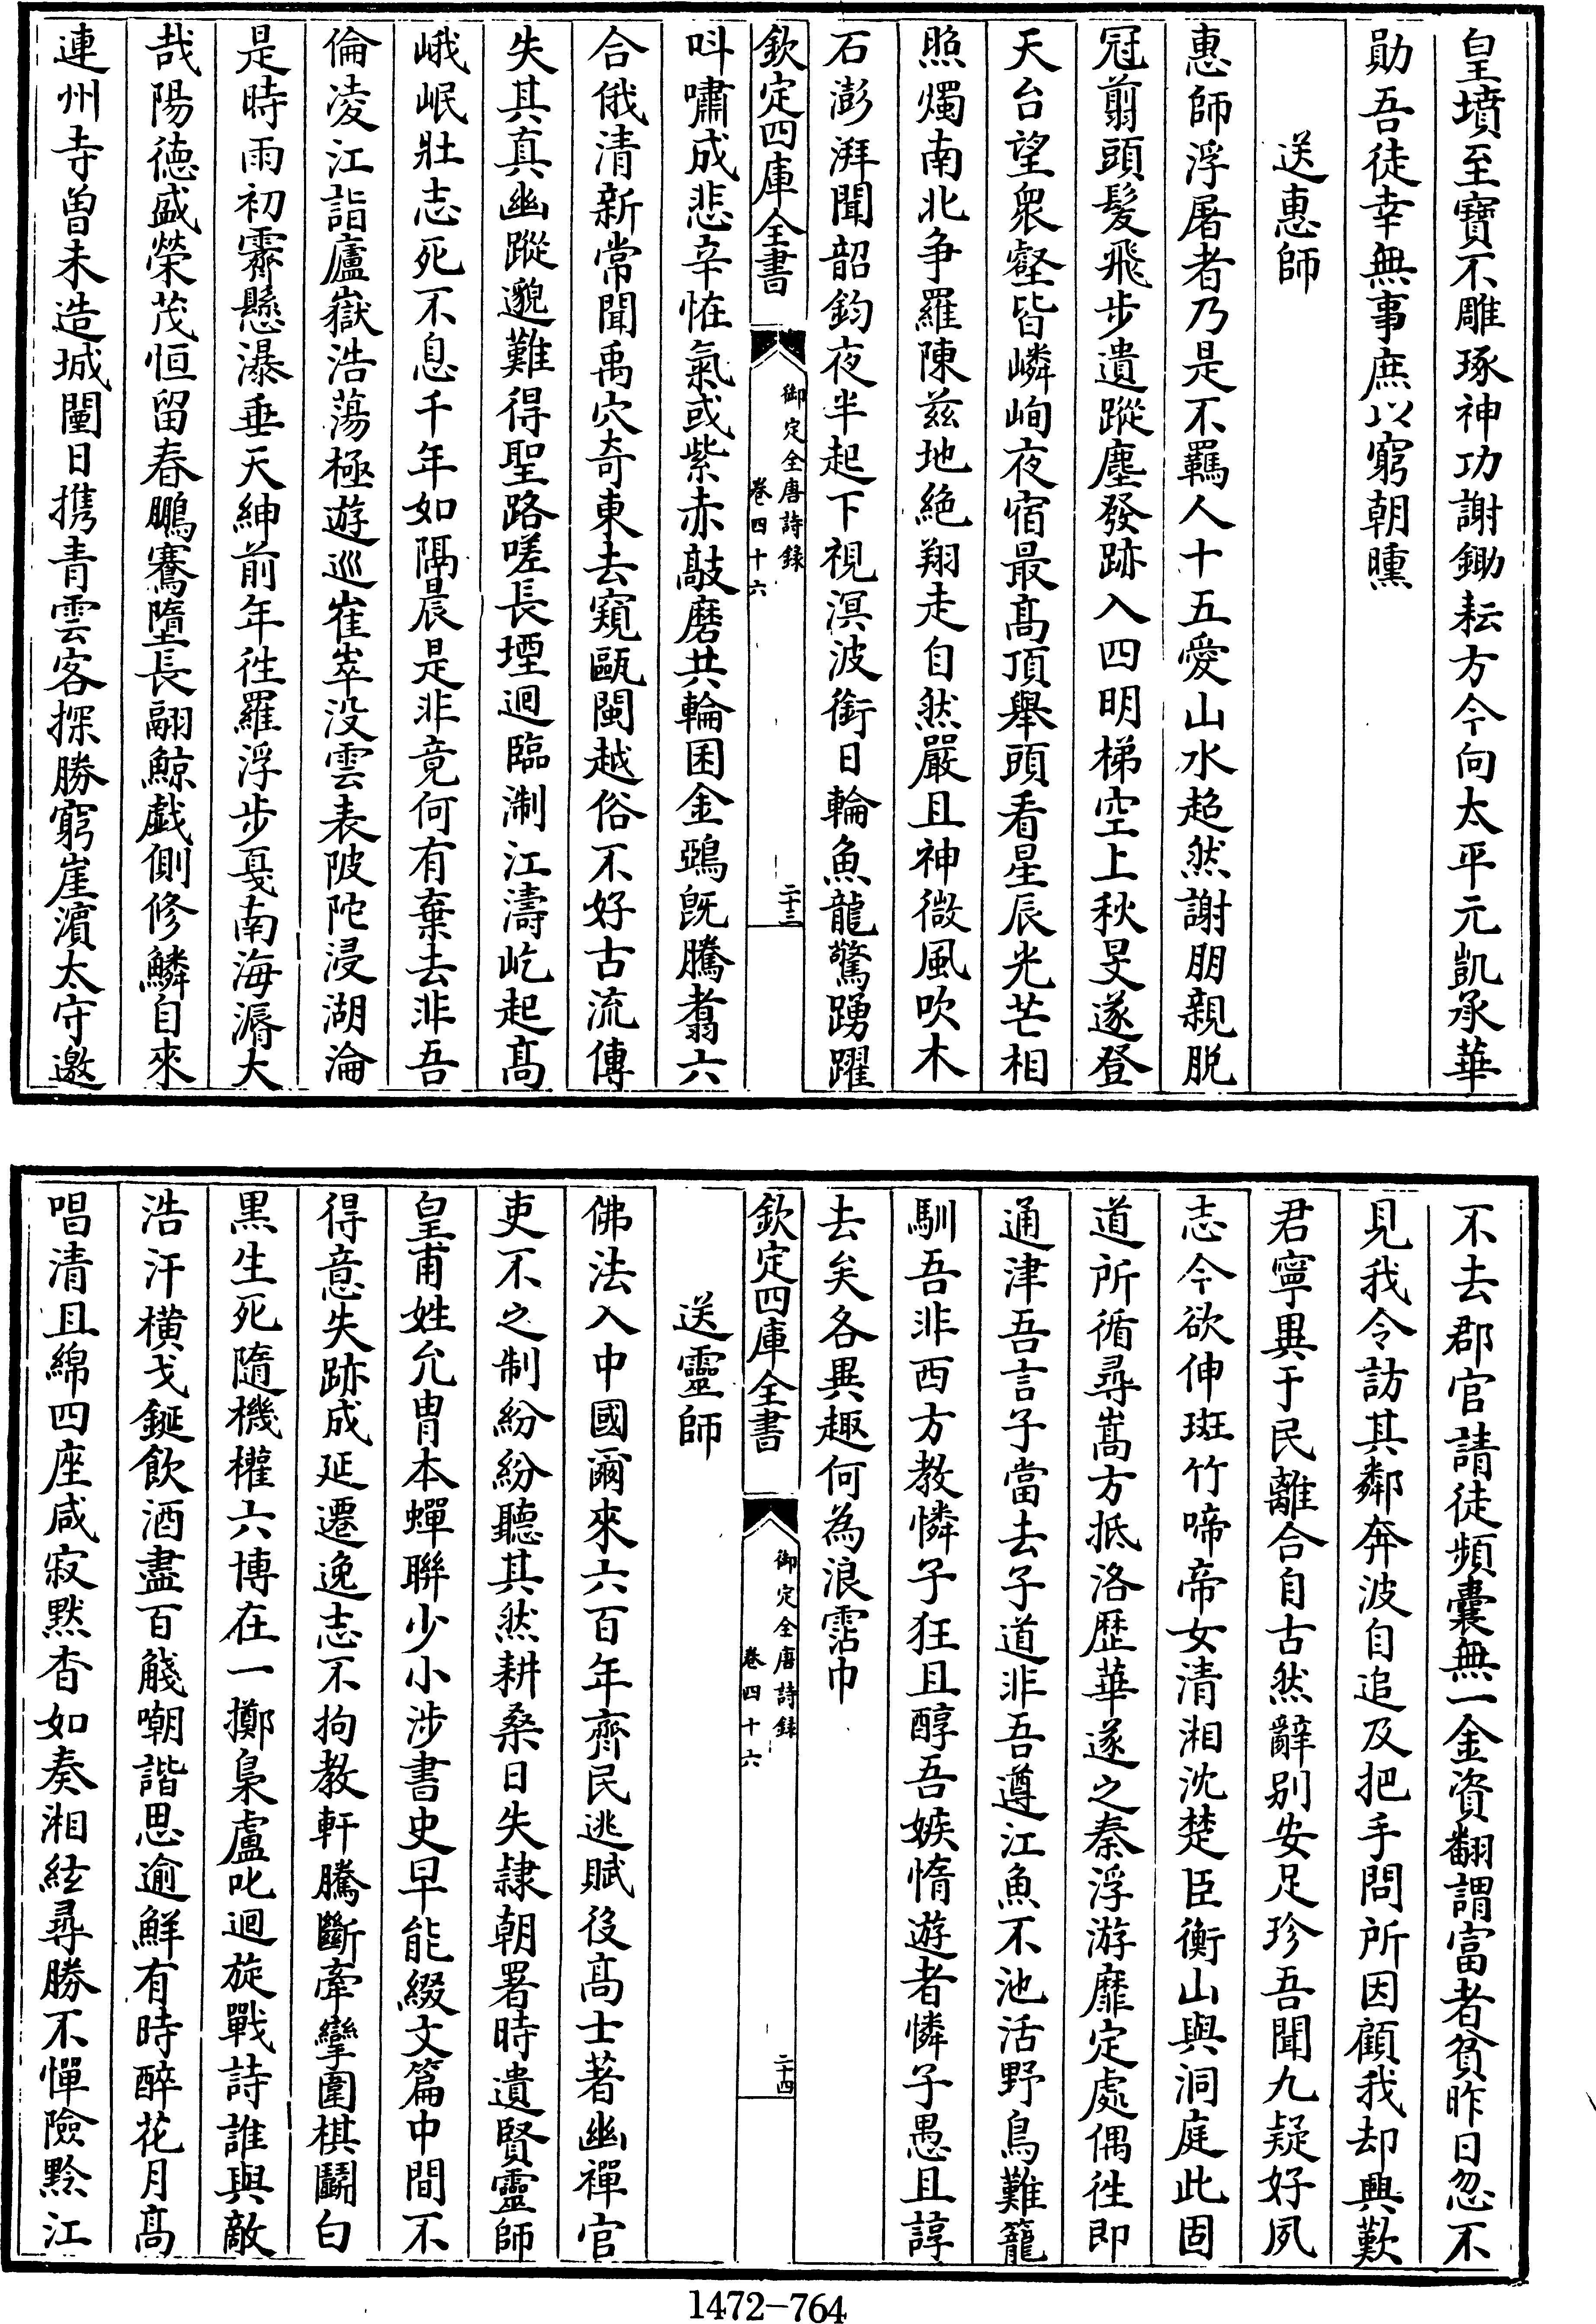 皇墳至寶不雕琢神功謝鋤耘方今向太平元凱承華
勛吾徒幸無事庶以窮朝曛
送惠師
惠師浮屠者乃是不羈人十五愛山水超然謝朋親脱
冠翦頭髮飛步遺蹤塵發跡入四明梯空上秋旻遂登
天台望衆壑皆嶙峋夜宿最髙頂舉頭看星辰光芒相
照燭南北争羅陳兹地絶翔走自然嚴且神微風吹木
石澎湃聞韶鈞夜半起下視溟波銜日輪魚龍驚踴躍
欽定四庫全書
御定全唐詩録
卷四十六
二十三
叫嘯成悲辛恠氣或紫赤敲磨共輪囷金鵶旣騰翥六
合俄清新常聞禹穴奇東去窺甌閩越俗不好古流傳
失其真幽蹤邈難得聖路嗟長堙迴臨淛江濤屹起髙
峨岷壯志死不息千年如隔晨是非竟何有棄去非吾
倫凌江詣廬嶽浩蕩極遊巡崔崒没雲表陂陀浸湖淪
是時雨初霽懸瀑垂天紳前年徃羅浮步戞南海漘大
哉陽德盛榮茂恒留春鵬騫墮長翮鯨戲側修鱗自來
連州寺曽未造城闉日携青雲客探勝窮崖濵太守邀
不去郡官請徒頻囊無一金資翻謂富者貧昨日忽不
見我令訪其鄰奔波自追及把手問所因顧我却興歎
君寧異于民離合自古然辭别安足珍吾聞九疑好夙
志今欲伸斑竹啼帝女清湘沈楚臣衡山與洞庭此固
道所循尋嵩方抵洛歴華遂之秦浮游靡定處偶徃即
通津吾言子當去子道非吾遵江魚不池活野鳥難籠
馴吾非西方教憐子狂且醇吾嫉惰遊者憐子愚且諄
去矣各異趣何為浪霑巾
欽定四庫全書
御定全唐詩録
卷四十六
二十四
送靈師
佛法入中國爾來六百年齊民逃賦役髙士著幽禪官
吏不之制紛紛聽其然耕桑日失隷朝署時遺賢靈師
皇甫姓允胄本蟬聯少小涉書史早能綴文篇中間不
得意失跡成延遷逸志不拘教軒騰斷牽攣圍棋鬭白
黒生死隨機權六博在一擲梟盧叱迴旋戰詩誰與敵
浩汗横戈鋋飲酒盡百觥嘲諧思逾鮮有時醉花月髙
唱清且綿四座咸寂黙杳如奏湘絃尋勝不憚險黔江
1472-764